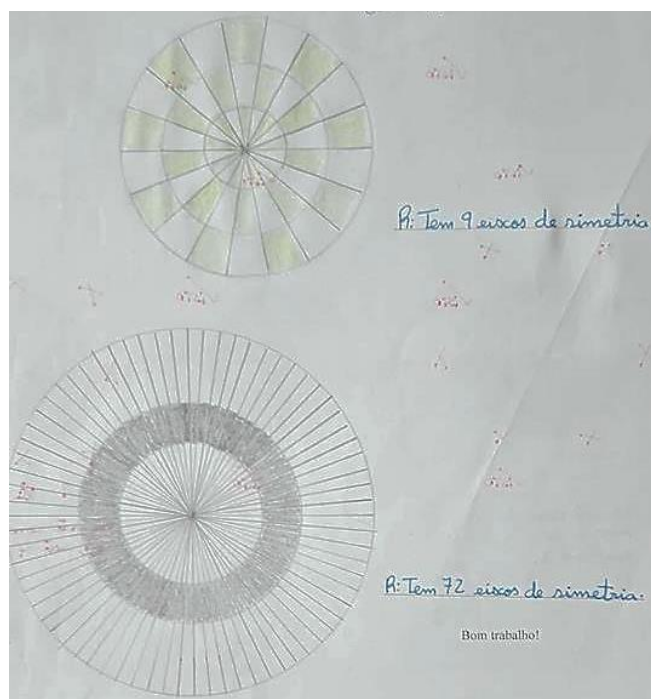 R: Tem 9 eixos de simetria
R: Tem 72 eixos de simetria.
Bom trabalho!